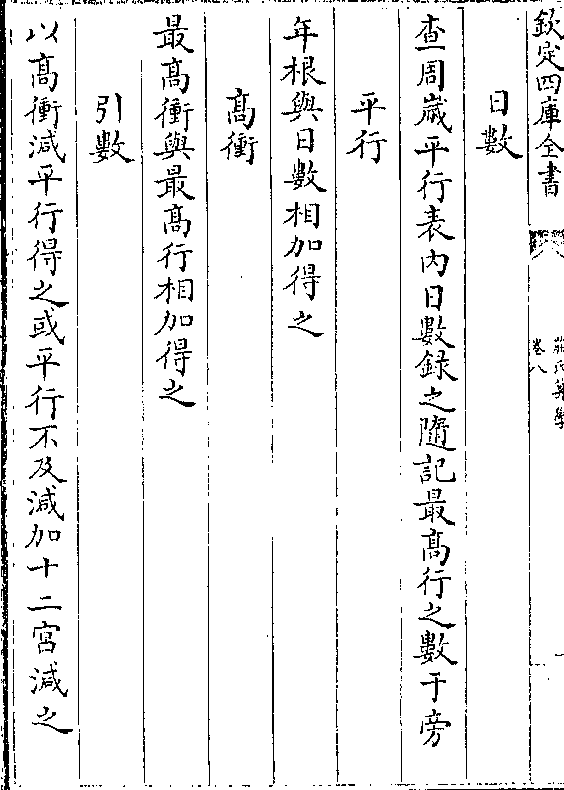 欽定四庫全書
莊氏算學
卷八
日數
查周歲平行表內日數錄之隨記最髙行之數于旁
平行
年根與日數相加得之
髙衝
最髙衝與最髙行相加得之
引數
以髙衝減平行得之或平行不及減加十二宮減之